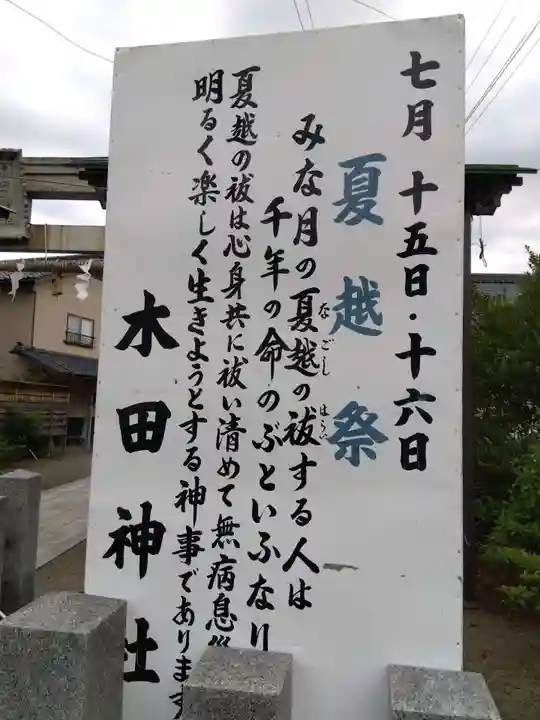 七月 十五日・十六日
夏越祭
みな月の夏越の祓する人は
なごし
はらい
千年の命のぶといふなり
夏越の祓は心身共に祓い清めて無病息
明るく楽しく生きようとする神事であります
木田神社